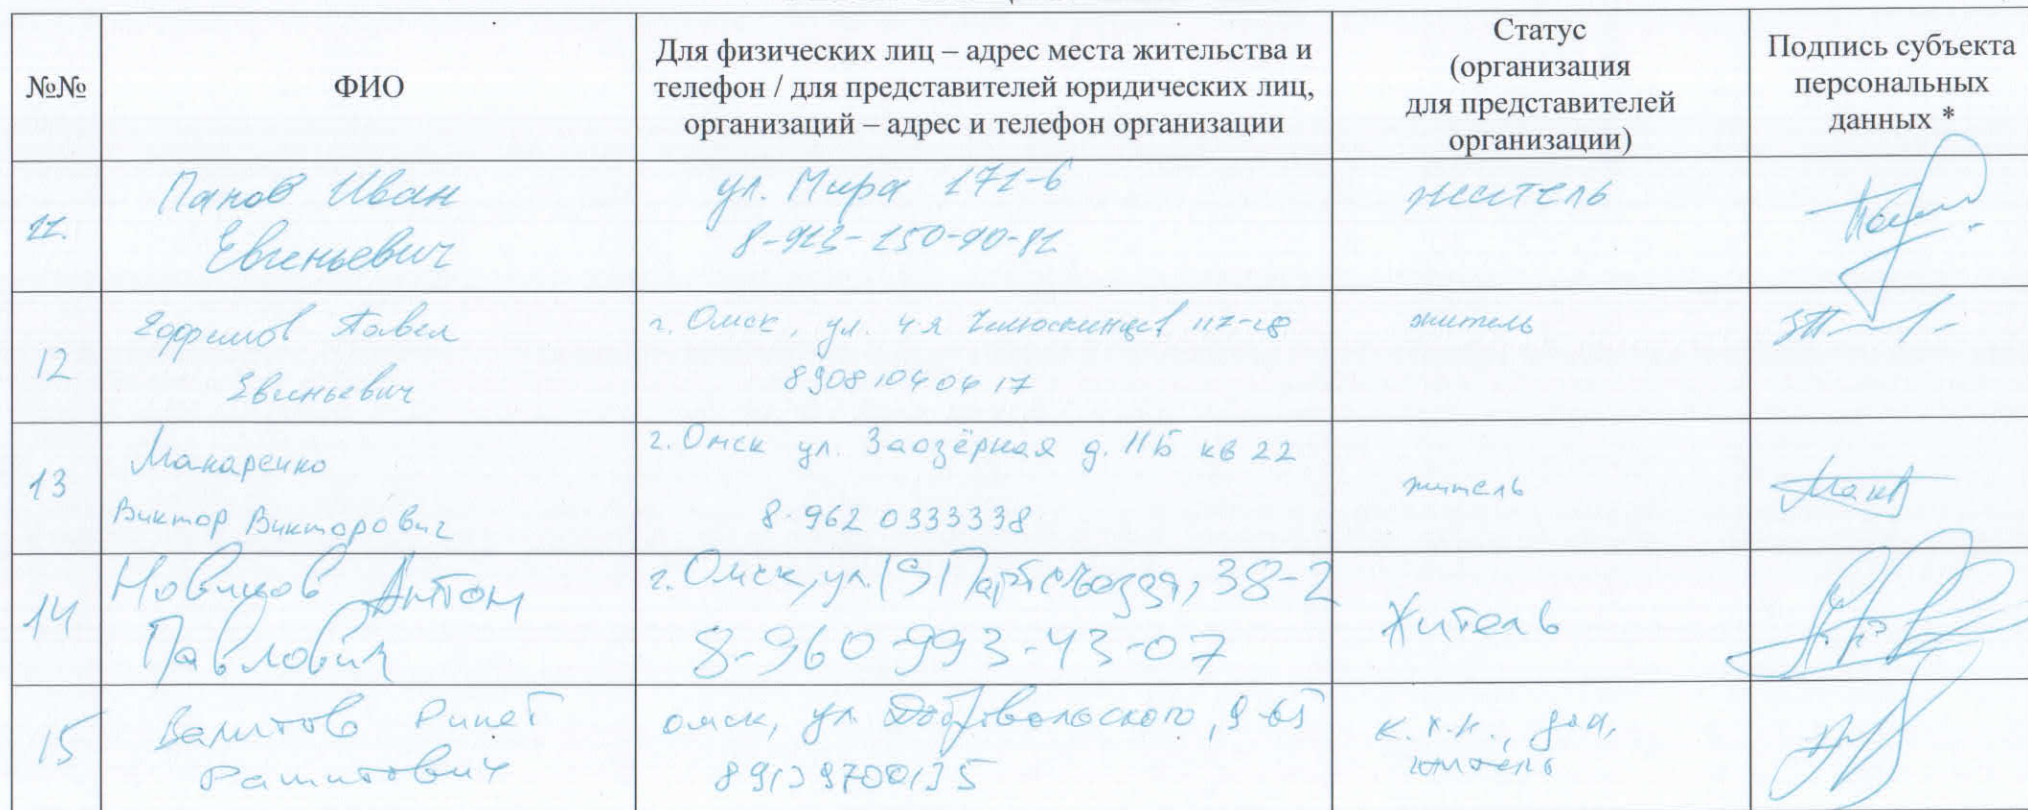 №№
ФИО
Для физических лиц – адрес места жительства и
телефон / для представителей юридических лиц,
организаций – адрес и телефон организации
Статус
(организация
для представителей
организации)
Подпись субъекта
персональных
данных *
11.
Панов Иван
Евгеньевич
ул. Мира 171-6
житель
12
Ефремов Павел
Евгеньевич
г. Омск, ул. 4-я Челюскинцев 117-18
89081040417
житель
13
Макаренко
Виктор Викторович
г. Омск ул. Заозёрная д. 11Б кв 22
8 962 0333338
житель
14
Антон
Павлович
г. Омск, ул. 19 Партсъезда, 38-2
8-960-993-43-07
Житель
15
Валитов Ринат
Рашитович
омск, ул. Добровольского,
к.х.н.,
житель